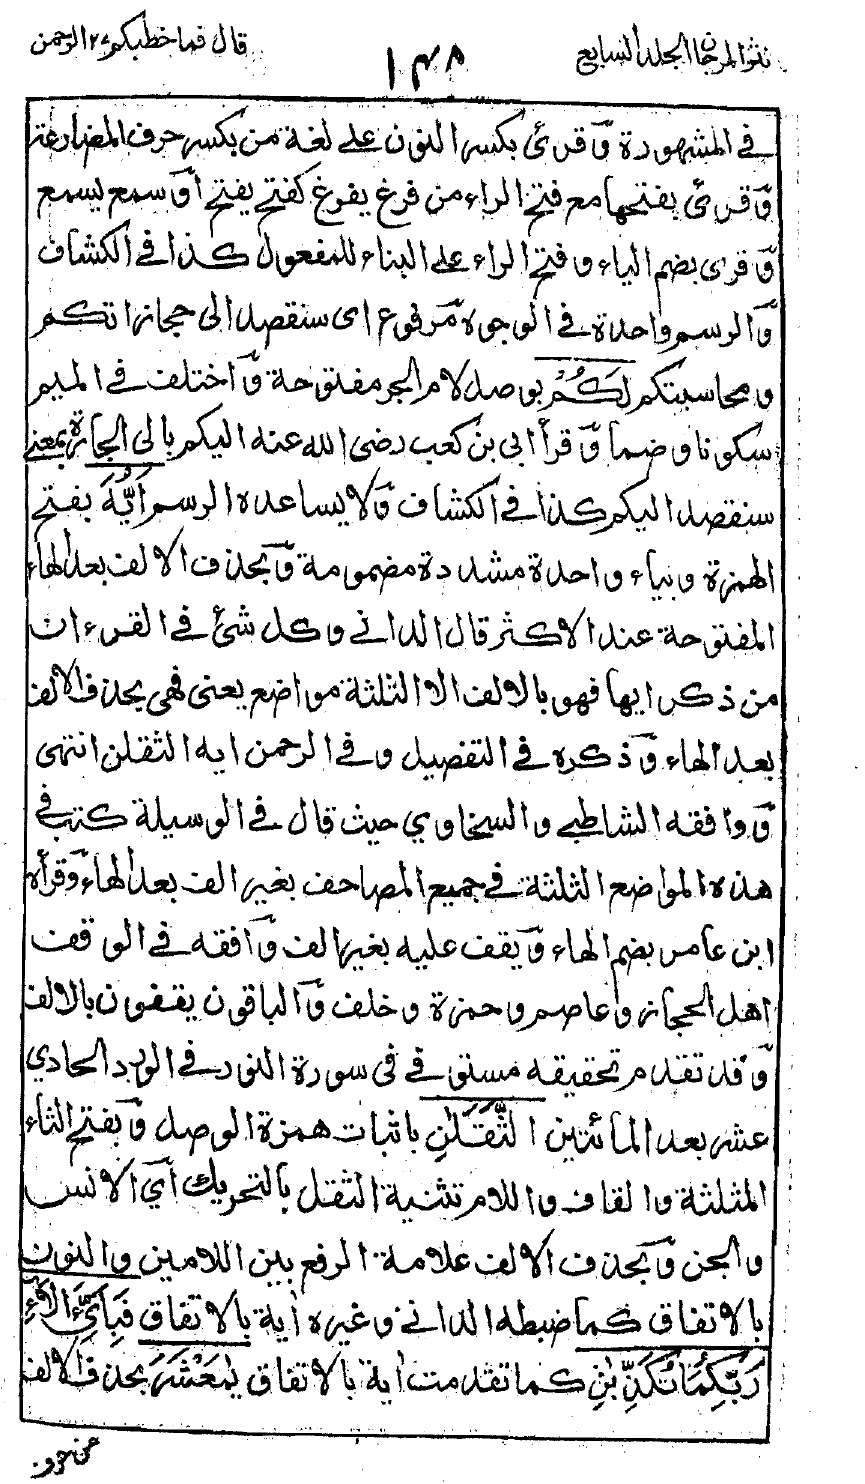 نثر المرجان الجلد السابع
١٤٨
قال فما خطبكم ٢٧ الرحمن
في المشهورة وَقرئ بكسر النون على لغة من بكسر حرف المضارعة
وَقرئ بفتحها مع فتح الراء من فرغ يفرغ كفتح يفتح اَو سمع يسمع
وَقرى بضم الياء و فتح الراء على البناء للمفعول كذا في الكشاف
وَالرسم واحدة في الوجوه مَرفوع اى سنقصد الى مجازاتكم
و محاسبتكم لَكُمْ بوصل لام الجر مفتوحة وَاختلف في الميم
سكونا و ضما وَقرأ ابى بن كعب رضى الله عنه اليكم بالى الجارة بمعنى
سنقصد اليكم كذا في الكشاف وَلا يساعده الرسم اَيُّهَ بفتح
الهمزة و بياء واحدة مشددة مضمومة وَبحذف الالف بعد الهاء
المفتوحة عند الاكثر قال الدانى وكل شئ في القرءان
من ذكر ايها فهو بالالف الا الثلثة مواضع يعنى فهى بحذف الالف
بعد الهاء وَذكره في التفصيل و في الرحمن ايه الثقلن انتهى
وَوافقه الشاطبى والسخاوي حيث قال في الوسيلة كتب في
هذه المواضع الثلثة في جميع المصاحف بغير الف بعد الهاء وَقرأه
ابن عامر بضم الهاء وَيقف عليه بغير الف وَافقه في الوقف
اهل الحجاز و عاصم و حمزة و خلف وَالباقون يقفون بالالف
وَقد تقدم تحقيقه مستوفى في سورة النور في الورد الحادي
عشر بعد المائتين الثَّقَلٰنِ باثبات همزة الوصل وَبفتح الثاء
المثلثة والقاف واللام تثنية الثقل بالتحريك اَي الانس
والجن وَبحذف الالف علامة الرفع بين اللامين والنون
بالاتفاق كما ضبطه الدانى و غيره اية بالاتفاق فَبِاَيِّ اٰلَآءِ
رَبِّكُمَا تُكَذِّبٰنِ كما تقدمت اية بالاتفاق يٰمَعْشَرَ بحذف الالف